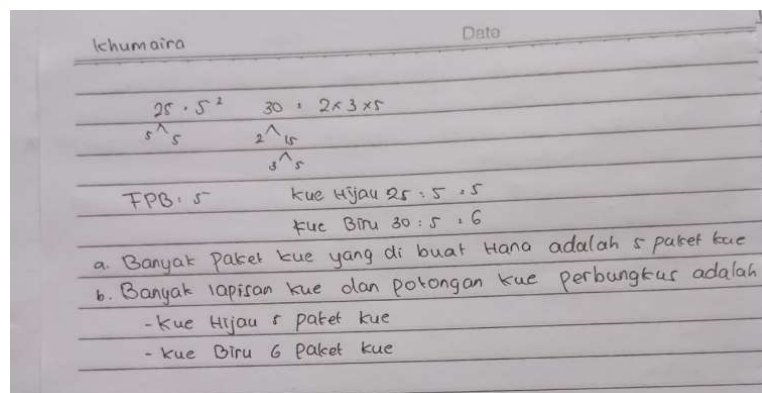 Khumaira
Date
25 = 5² 30 = 2 x 3 x 5
5 5 2 15
3 5
FPB : 5 kue Hijau 25 : 5 = 5
kue Biru 30 : 5 = 6
a. Banyak Paket kue yang di buat Hana adalah 5 paket kue
b. Banyak lapisan kue dan potongan kue perbungkus adalah
- kue Hijau 5 paket kue
- kue Biru 6 Paket kue